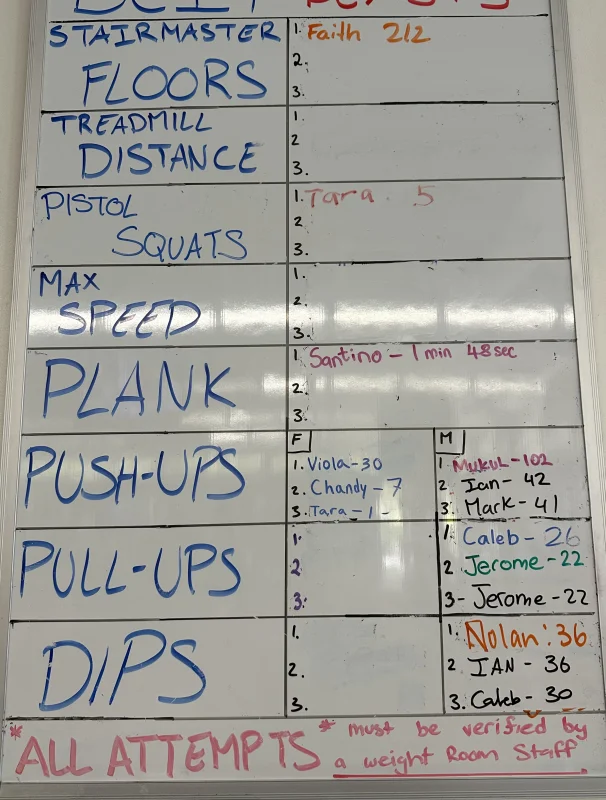 STAIRMASTER
FLOORS
1. Faith 212
2.
3.
TREADMILL
DISTANCE
1.
2
3.
PISTOL
SQUATS
1. Tara. 5
2.
3.
MAX
SPEED
1.
2.
3.
PLANK
1. Santino - 1 min 48 sec
2.
3.
PUSH-UPS
F
1. Viola - 30
2. Chandy - 7
3. Tara - 1 -
M
1. MUKUL - 102
2. Ian - 42
3. Mark - 41
PULL-UPS
1.
2.
3.
1. Caleb - 26
2. Jerome - 22
3- Jerome - 22
DIPS
1.
2.
3.
1. Nolan: 36
2. IAN - 36
3. Caleb - 30
*ALL ATTEMPTS * must be verified by
a weight Room Staff